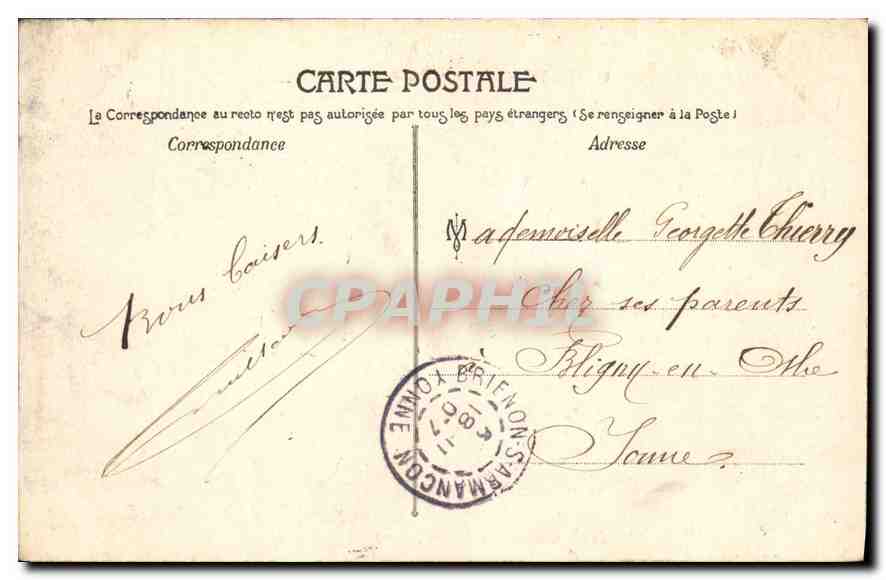 CARTE POSTALE
La Correspondance au recto n'est pas autorisée par tous les pays étrangers (Se renseigner à la Poste)
Correspondance
Adresse
Bons baisers.
Mademoiselle Georgette Thierry
Chez ses parents
Bligny-en-Othe
Yonne.
BRIENON-S-ARMANCON YONNE
18
11
07
CPAPHIL